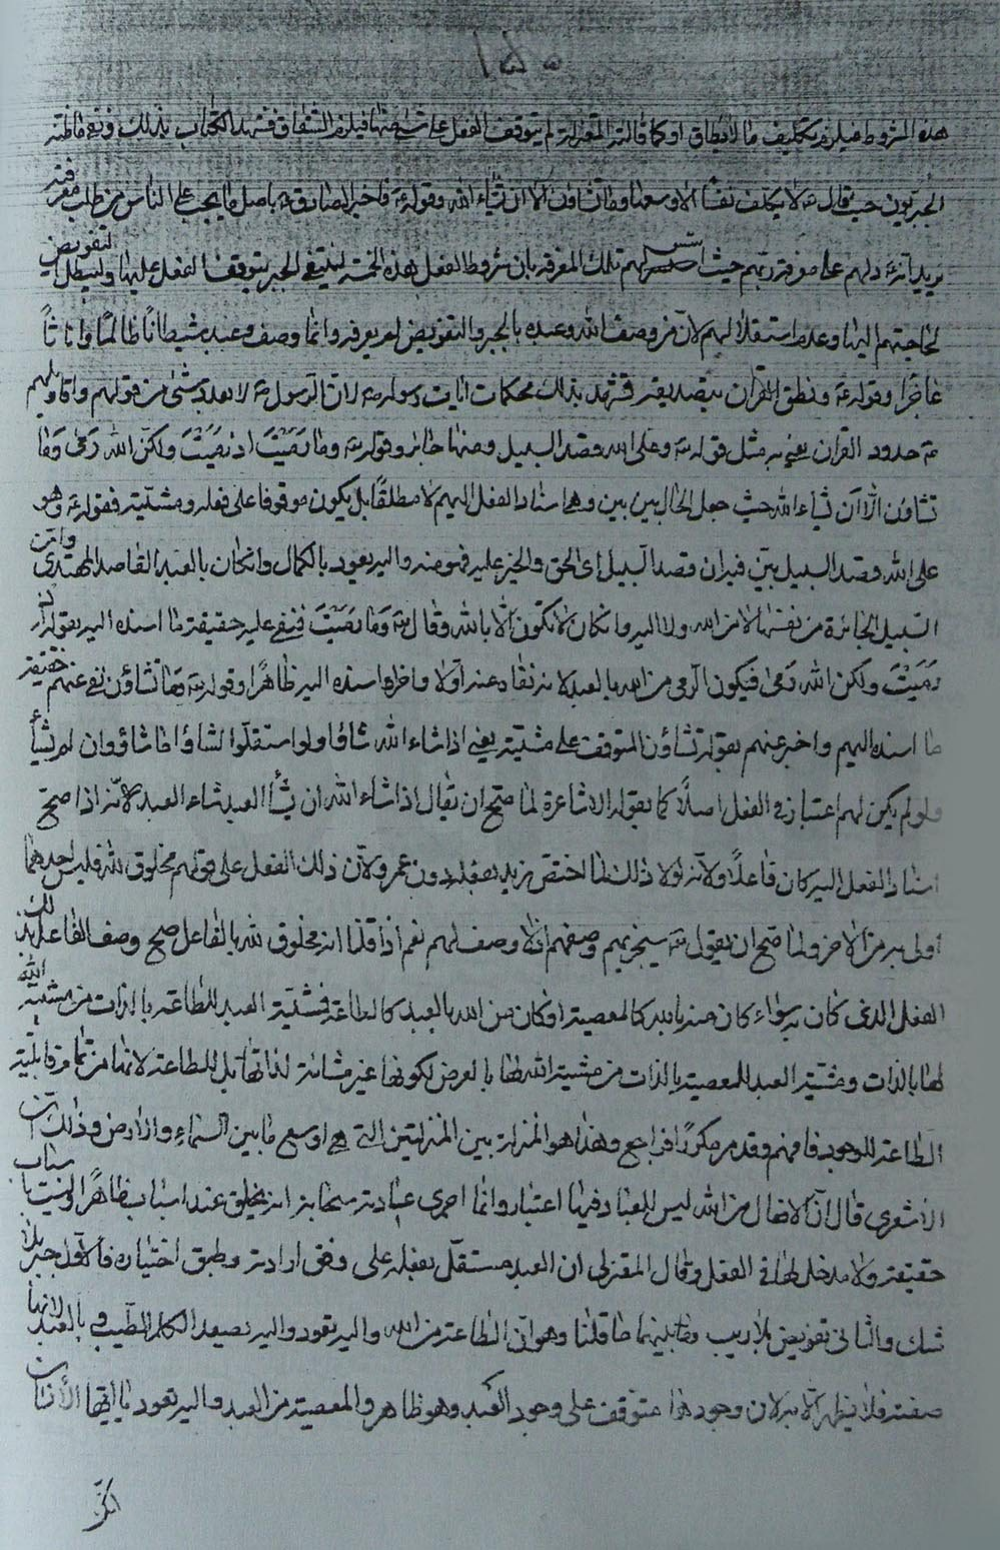 هذه الشروط فيلزم تكليف ما لا يطاق او كما قالته المعتزلة لم يتوقف الفعل على شئ منها فيلزم الشقاق فشهد الكتاب بذلك ونفى ما ظنه
الجبريون حيث قال تع لا يكلف نفسًا الا وسعها وما تشاؤن الا ان يشاء الله وقوله ع فاخبر الصادق ع باصل ما يجب على الناس من طلب معرفته
يريد انه ع دلهم على معرفة ربهم حيث لهم تلك المعرفة بان شروط الفعل هذه الخمسة لينتفى الجبر بتوقف الفعل عليها وليبطل التفويض
لحاجتهم اليها وعدم استقلالهم لان من وصف الله وعبده بالجبر والتفويض لم يعرفه وانما وصف وعبد شيطانًا ظالمًا واناثًا
عاجزًا وقوله ع ونطق القرآن بتصديقه فتشهد بذلك محكمات آيات رسوله ص لان الرسول ع لا يعدو بشئ من قولهم واقاويلهم
ع حدود القرآن يعنى به مثل قوله تع وعلى الله قصد السبيل ومنها جائر وقوله تع وما رميت اذ رميت ولكن الله رمى وما
تشاؤن الا ان يشاء الله حيث جعل الحال بين بين وهى اسناد الفعل اليهم لا مطلقًا بل يكون موقوفا على فعله ومشيته فقوله تع وهو
على الله قصد السبيل بين فيه ان قصد السبيل اى الحق والخير عليه فهو منه واليه يعود بالكمال وان كان بالعبد القاصد المهتدى وان
السبيل الجائرة من نفسها لا من الله ولا اليه وان كان لا تكون الا بالله وقال تع وما رميت فنفى عليه حقيقة ما اسنده اليه بقوله اذ
رميت ولكن الله رمى فيكون الرمى من الله بالعبد لانه نفاه عنه اولا واخرا اسنده اليه ظاهرًا وقوله تع وما تشاؤن نفى عنهم حقيقة
ما اسنده اليهم واخبر عنهم بقوله تشاؤن المتوقف على مشيته يعنى اذا شاء الله شاؤا ولو استقلوا لشاؤا ما شاؤا وان لم يشأ
ولو لم يكن لهم اعتبار فى الفعل اصلًا كما يقوله الاشاعرة لما صح ان يقال اذا شاء الله ان يشأ العبد شاء العبد لانه اذا صح
اسناد الفعل اليه كان فاعلًا ولانه لولا ذلك لما اختص زيد بفعله دون عمرو لان ذلك الفعل على قولهم مخلوق لله فليس احدهما
اولى به من الآخر ولما صح ان يقول تع سيجزيهم وصفهم اذ لا وصف لهم نعم اذا قلنا انه مخلوق لله بالفاعل صح وصف الفاعل بذلك
الفعل الذى كان به سواء كان منه بالله كالمعصية او كان من الله بالعبد كالطاعة فمشية العبد للطاعة بالذات من مشية الله
لها بالذات ومشية العبد للمعصية بالذات من مشية الله لها بالعرض لكونها غير مشاءة لذاتها بل للطاعة لانها من تمام قابلية
الطاعة للوجود فافهم وقد مر مكررًا فراجع وهذا هو المنزلة بين المنزلتين التى هى اوسع ما بين السماء والارض وذلك ان
الاشعرى قال ان الافعال من الله ليس للعباد فيها اعتبار وانما اجرى عادته سبحانه انه يخلق عند اسباب ظاهرًا وليست باسباب
حقيقة ولا مدخل لها فى الفعل وقال المعتزلى ان العبد مستقل بفعله على وفق ارادته وطبق اختياره فالاول جبر بلا
شك والثانى تفويض بلا ريب وما بينهما ما قلنا وهو ان الطاعة من الله واليه تعود واليه يصعد الكلم الطيب وفى بالعبد لانها
صفته فلا يظهر الا به لان وجودها متوقف على وجود العبد وهو ظاهر والمعصية من العبد واليه تعود يا ايها الناس ان